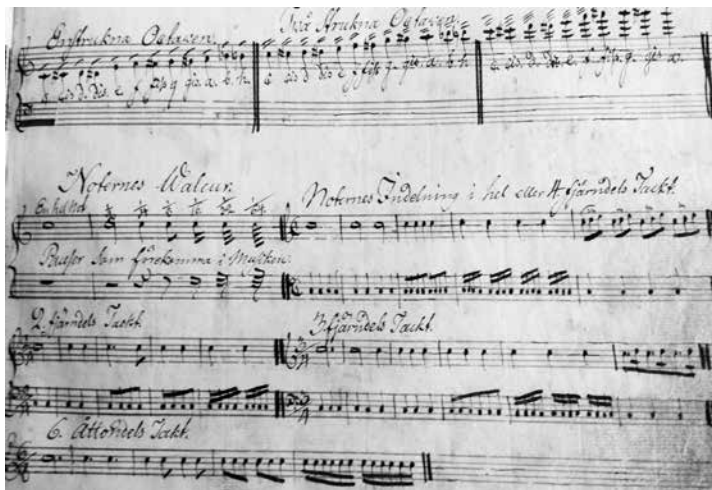 Enstrukna Octaven. Två strukna Octaven
c cis d. dis. e f fis g gis. a. b. h. c cis d dis e f fis g. gis. a. b. h c. cis. d. dis. e. f. fis. g. gis a.
Noternes Waleur. Noternes Indelning i hel eller 4 fjärndels Tackt.
En hel not 1/2 1/4 1/8 1/16 1/32 1/64
Pauser som förekomma i Musiken.
2. fjärndels Tackt. 3 fjärndels Tackt.
2/4 3/4
2/4 3/4
6. Åttondels Takt.
6/8